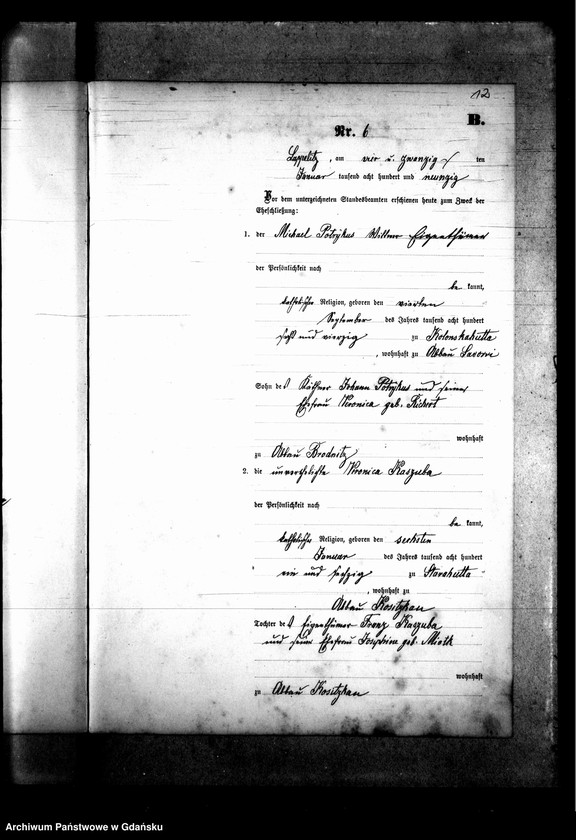 12
B.
Nr. 6
am vier u. zwanzig ten
Januar tausend acht hundert und neunzig
Vor dem unterzeichneten Standesbeamten erschienen heute zum Zweck der
Eheschließung:
1. der Michael Potrykus Wittwer Eigenthümer
der Persönlichkeit nach
be kannt,
katholischer Religion, geboren den vierten
September des Jahres tausend acht hundert
sechs und vierzig zu
, wohnhaft zu Abbau
Sohn des Käthner Johann Potrykus und seiner
Ehefrau Veronica geb.
wohnhaft
zu Abbau Brodnitz
2. die unverehelichte Veronica Kaszuba
der Persönlichkeit nach
be kannt,
katholischer Religion, geboren den sechsten
Januar des Jahres tausend acht hundert
ein und sechzig zu Starahutta
, wohnhaft zu
Abbau Kositzkau
Tochter des Eigenthümer Franz Kaszuba
und seine Ehefrau Josephine geb. Mioth
wohnhaft
zu Abbau Kositzkau
Archiwum Państwowe w Gdańsku